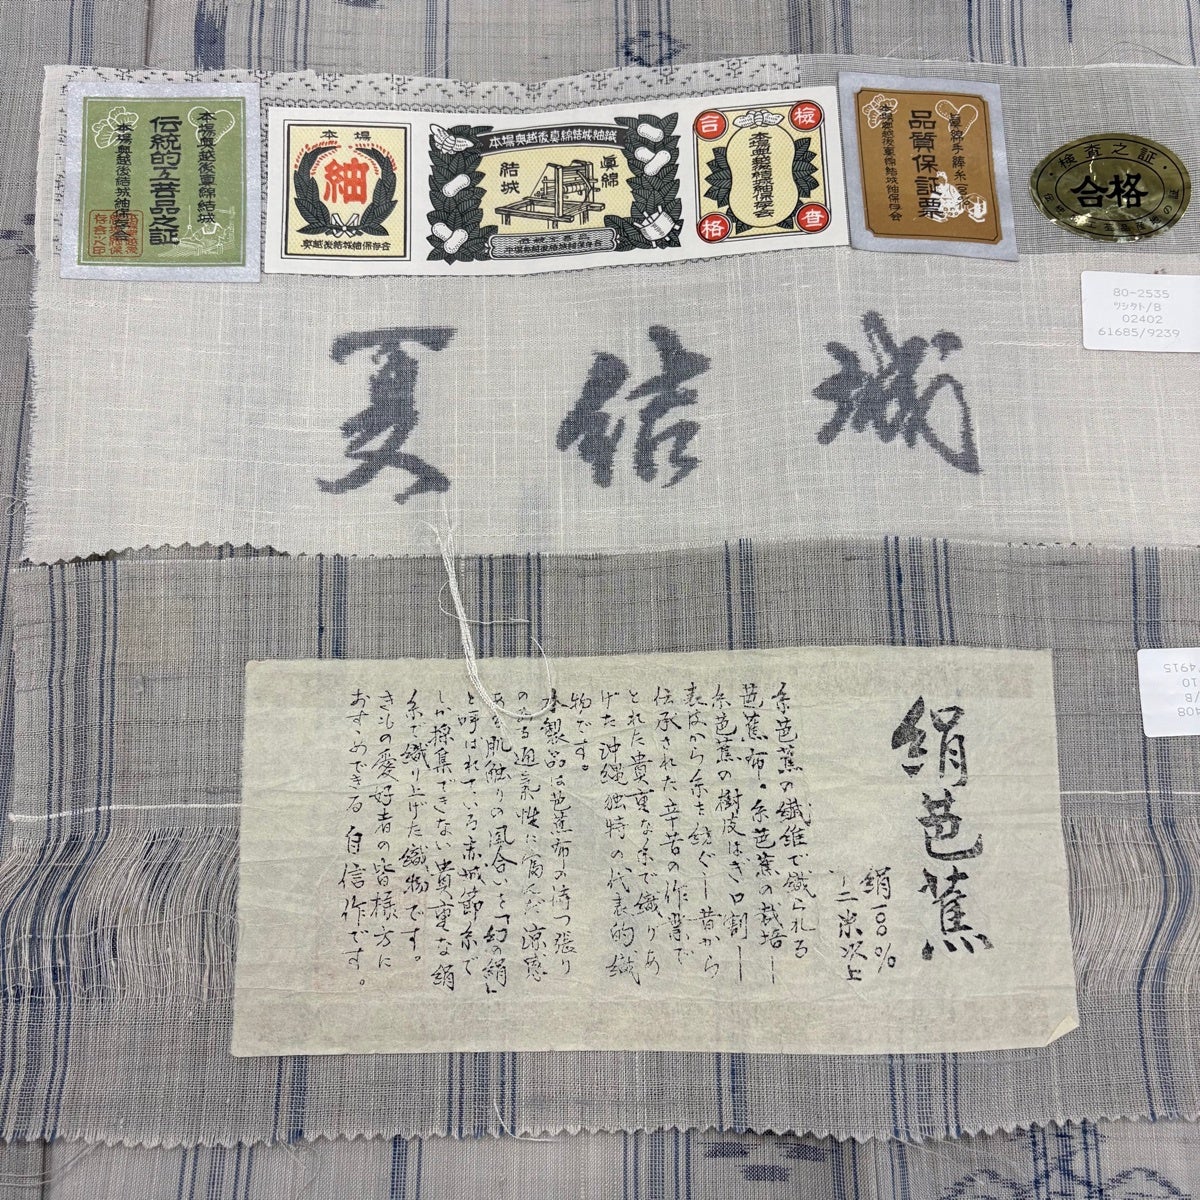 本場奥越後真綿結城
伝統的工芸品之証
本場奥越後結城紬保存会
本場
紬
奥越後結城紬保存会
本場奥越後真綿結城紬織
結城
真綿
合
検
格
査
本場奥越後結城紬保存会
品質保証票
本場奥越後真綿結城紬保存会
検査之証
合格
80-2535
ツシタト/B
02402
61685/9239
夏結城
絹芭蕉
絹一〇〇%
十二米以上
糸芭蕉の繊維で織られる
芭蕉布。糸芭蕉の栽培ー
糸芭蕉の樹皮はぎ・口割ー
表皮から糸を紡ぐー昔から
伝承された辛苦の作業で
とれた貴重な糸で織りあ
げた沖縄独特の代表的織
物です。
本製品は芭蕉布の持つ張り
のある通気性に富んだ涼感
ある肌触りの風合いと「幻の絹」
と呼ばれている赤城節糸で
しか採集できない貴重な絹
糸で織り上げた織物です。
きもの愛好者の皆様方に
おすゝめできる自信作です。